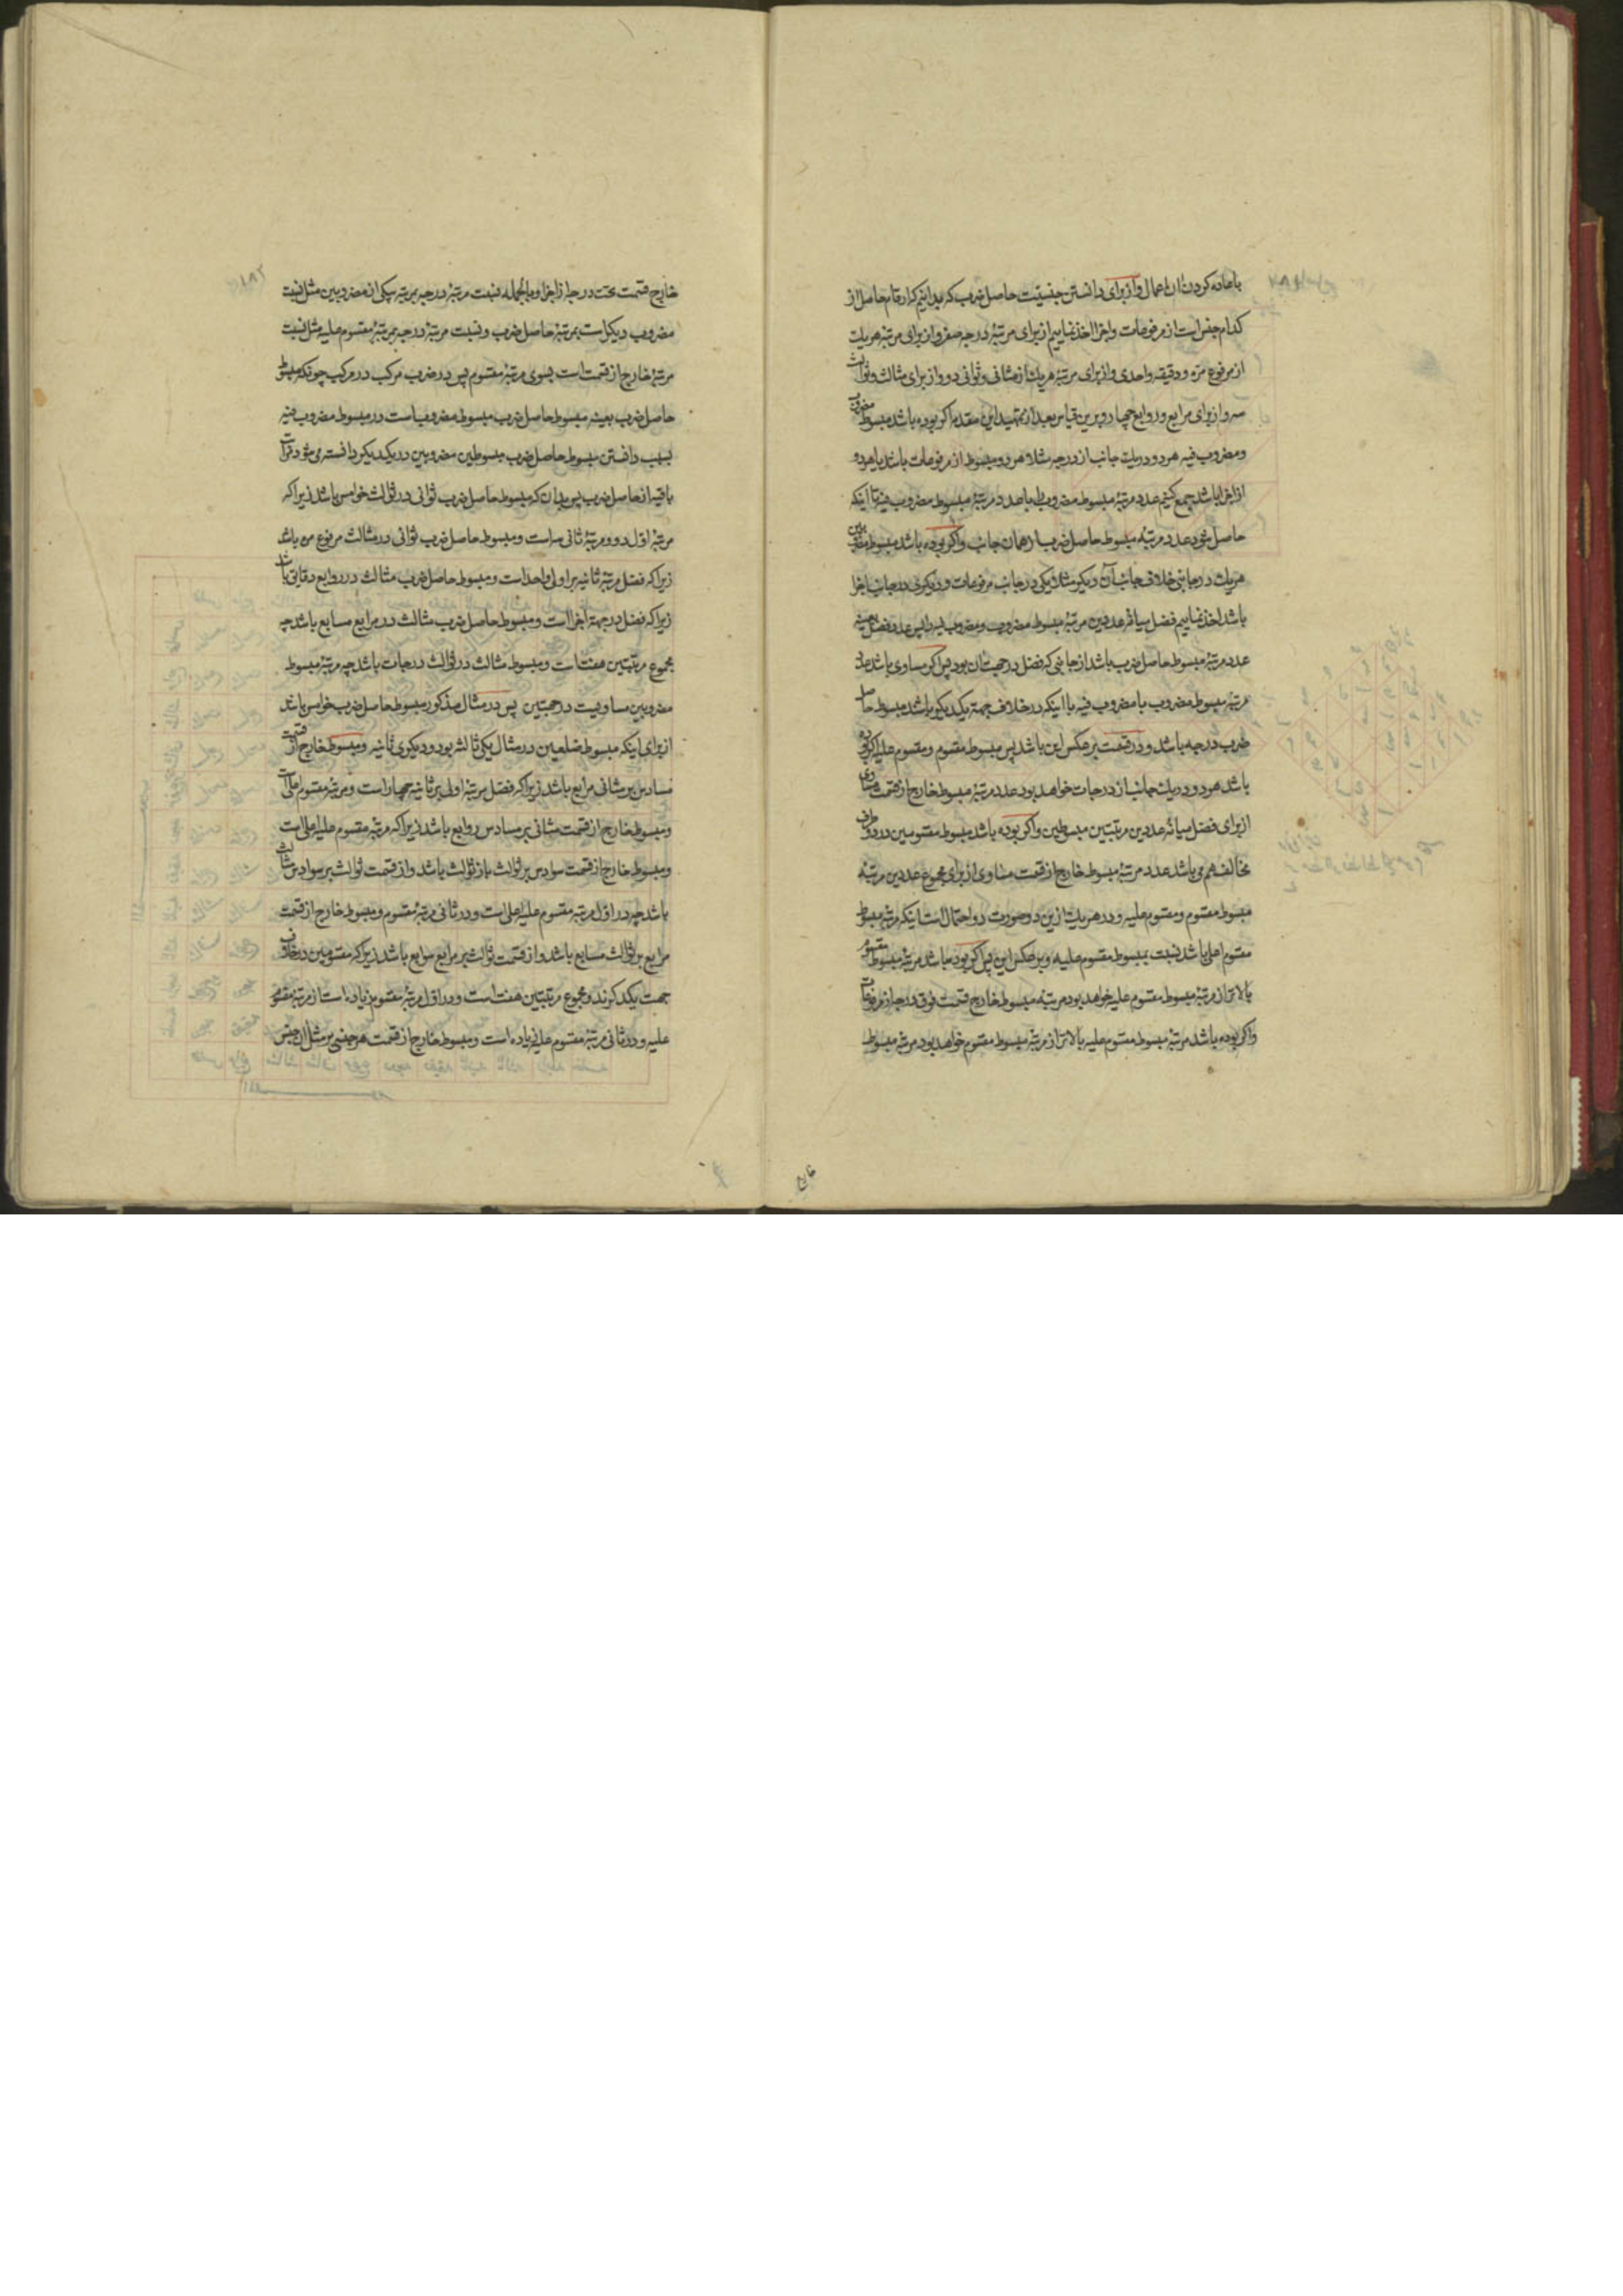 باعاده کردن ان اعمال و از برای دانستن جنسیت حاصل ضرب که بدانیم که ارقام حاصل از
کدام جنس است از مرفوعات و اجزا اخذ نماییم از برای مرتبهٔ درجه صفر و از برای مرتبه هریک
از مرفوع مره و دقیقه واحدی و از برای مرتبهٔ هریک از مثانی و ثوانی دو و از برای مثالث و ثوالث
سه و از برای مرابع و روابع چهار و برین قیاس بعد از تمهید این مقدمه اکر بوده باشد مبسوط مضروب
و مضروب فیه هر دو در یک جانب از درجه مثلا هر دو مبسوط از مرفوعات باشد یا هر دو
از اجزا باشد جمع کنیم عدد مرتبهٔ مبسوط مضروب را با عدد مرتبهٔ مبسوط مضروب فیه تا اینکه
حاصل شود عدد مرتبه مبسوط حاصل ضرب از همان جانب و اکر بوده باشد مبسوط مضروبین
هریک در جانبی خلاف جانب آن دیکر مثلا یکی در جانب مرفوعات و دیکری در جانب اجزا
باشد اخذ نماییم فضل میانهٔ عددین مرتبهٔ مبسوط مضروب و مضروب فیه را پس عدد فضل بعینه
عدد مرتبهٔ مبسوط حاصل ضرب باشد از جانبی که فضل در جهت ان بود پس اکر مساوی باشد عدد
مرتبهٔ مبسوط مضروب با مضروب فیه با اینکه در خلاف جهة یکدیکر باشد مبسوط حاصل
ضرب درجه باشد و در قسمت بر عکس این باشد پس مبسوط مقسوم و مقسوم علیه اکر بوده
باشد هر دو در یک جانب از درجات خواهد بود عدد مرتبهٔ مبسوط خارج از قسمت مساوی
از برای فضل میانهٔ عددین مرتبتین مبسوطین و اکر بوده باشد مبسوط مقسومین در دو طرف
مخالف هم می باشد عدد مرتبهٔ مبسوط خارج از قسمت مساوی از برای مجموع عددین مرتبهٔ
مبسوط مقسوم و مقسوم علیه و در هریک ازین دو صورت دو احتمال است اینکه مرتبه مبسوط
مقسوم اعلی باشد نسبت بمبسوط مقسوم علیه و بر عکس این پس اکر بوده باشد مرتبهٔ مبسوط مقسوم
بالاتر از مرتبهٔ مبسوط مقسوم علیه خواهد بود مرتبه مبسوط خارج قسمت فوق درجه از مرفوعات
و اکر بوده باشد مرتبهٔ مبسوط مقسوم علیه بالاتر از مرتبه مبسوط مقسوم خواهد بود مرتبه مبسوط
۱۸۲
خارج قسمت تحت درجه از اجزا و بالجمله نسبت مرتبهٔ درجه بمرتبه یکی از مضروبین مثل نسبت
مضروب دیکر است بمرتبهٔ حاصل ضرب و نسبت مرتبهٔ درجه بمرتبهٔ مقسوم علیه مثل نسبت
مرتبهٔ خارج از قسمت است بسوی مرتبهٔ مقسوم پس در ضرب مرکب در مرکب چونکه مبسوط
حاصل ضرب بعینه مبسوط حاصل ضرب مبسوط مضروبست در مبسوط مضروب فیه
بسبب دانستن مبسوط حاصل ضرب مبسوطین مضروبین در یکدیکر دانسته می شود مراتب
باقیه از حاصل ضرب پس بدان که مبسوط حاصل ضرب ثوانی در ثوالث خوامس باشد زیرا که
مرتبهٔ اول دو و مرتبهٔ ثانی سه است و مبسوط حاصل ضرب ثوانی در مثالث مرفوع مره باشد
زیرا که فضل مرتبهٔ ثانیه بر اولی واحد است و مبسوط حاصل ضرب مثالث در روابع دقایق باشد
زیرا که فضل در جهة اجزا است و مبسوط حاصل ضرب مثالث در مرابع مسابع باشد چه
مجموع مرتبتین هفت است و مبسوط مثالث در ثوالث درجات باشد چه مرتبهٔ مبسوط
مضروبین مساویست در جهتین پس در مثال مذکور مبسوط حاصل ضرب خوامس باشد
از برای اینکه مبسوط ضلعین در مثال یکی ثالثه بود و دیکری ثانیه و مبسوط خارج از قسمت
مسادس بر مثانی مرابع باشد زیرا که فضل مرتبهٔ اولی بر ثانیه چهار است و مرتبهٔ مقسوم اعلی است
و مبسوط خارج از قسمت مثانی بر مسادس روابع باشد زیرا که مرتبهٔ مقسوم علیه اعلی است
و مبسوط خارج از قسمت سوادس بر ثوالث باز ثوالث باشد و از قسمت ثوالث بر سوادس مثالث
باشد چه در اول مرتبه مقسوم علیه اعلی است و در ثانی مرتبهٔ مقسوم و مبسوط خارج از قسمت
مرابع بر ثوالث مسابع باشد و از قسمت ثوالث بر مرابع سوابع باشد زیرا که مقسومین در خلاف
جهت یکدیکرند و مجموع مرتبتین هفت است و در اول مرتبهٔ مقسوم زیاده است از مرتبهٔ مقسوم
علیه و در ثانی مرتبهٔ مقسوم علیه زیاده است و مبسوط خارج از قسمت هر جنسی بر مثل ان جنس